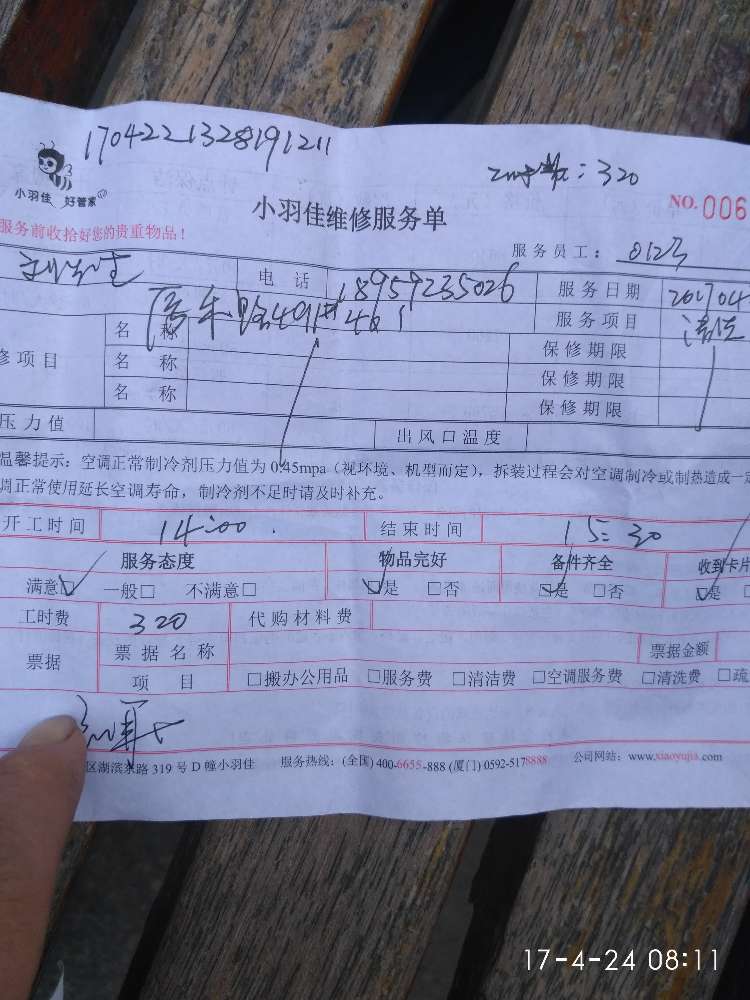 1704221328191211
320
小羽佳 好管家
小羽佳维修服务单
NO. 006
服务前收拾好您的贵重物品!
服务员工:
电 话 18959235026 服务日期 201704
名 称 服务项目
修项目 名 称 保修期限
名 称 保修期限
保修期限
压力值 出风口温度
温馨提示:空调正常制冷剂压力值为 0.45mpa(视环境、机型而定),拆装过程会对空调制冷或制热造成一定
调正常使用延长空调寿命,制冷剂不足时请及时补充。
开工时间 14:00 结束时间 15:30
服务态度 物品完好 备件齐全 收到卡片
满意□ 一般□ 不满意□ □是 □否 □是 □否 □是
工时费 320 代购材料费
票据 票据名称 票据金额
项 目 □搬办公用品 □服务费 □清洁费 □空调服务费 □清洗费 □疏
区湖滨东路 319 号 D 幢小羽佳 服务热线:(全国) 400-6655-888 (厦门) 0592-5178888 公司网站:www.xiaoyujia.com
17-4-24 08:11